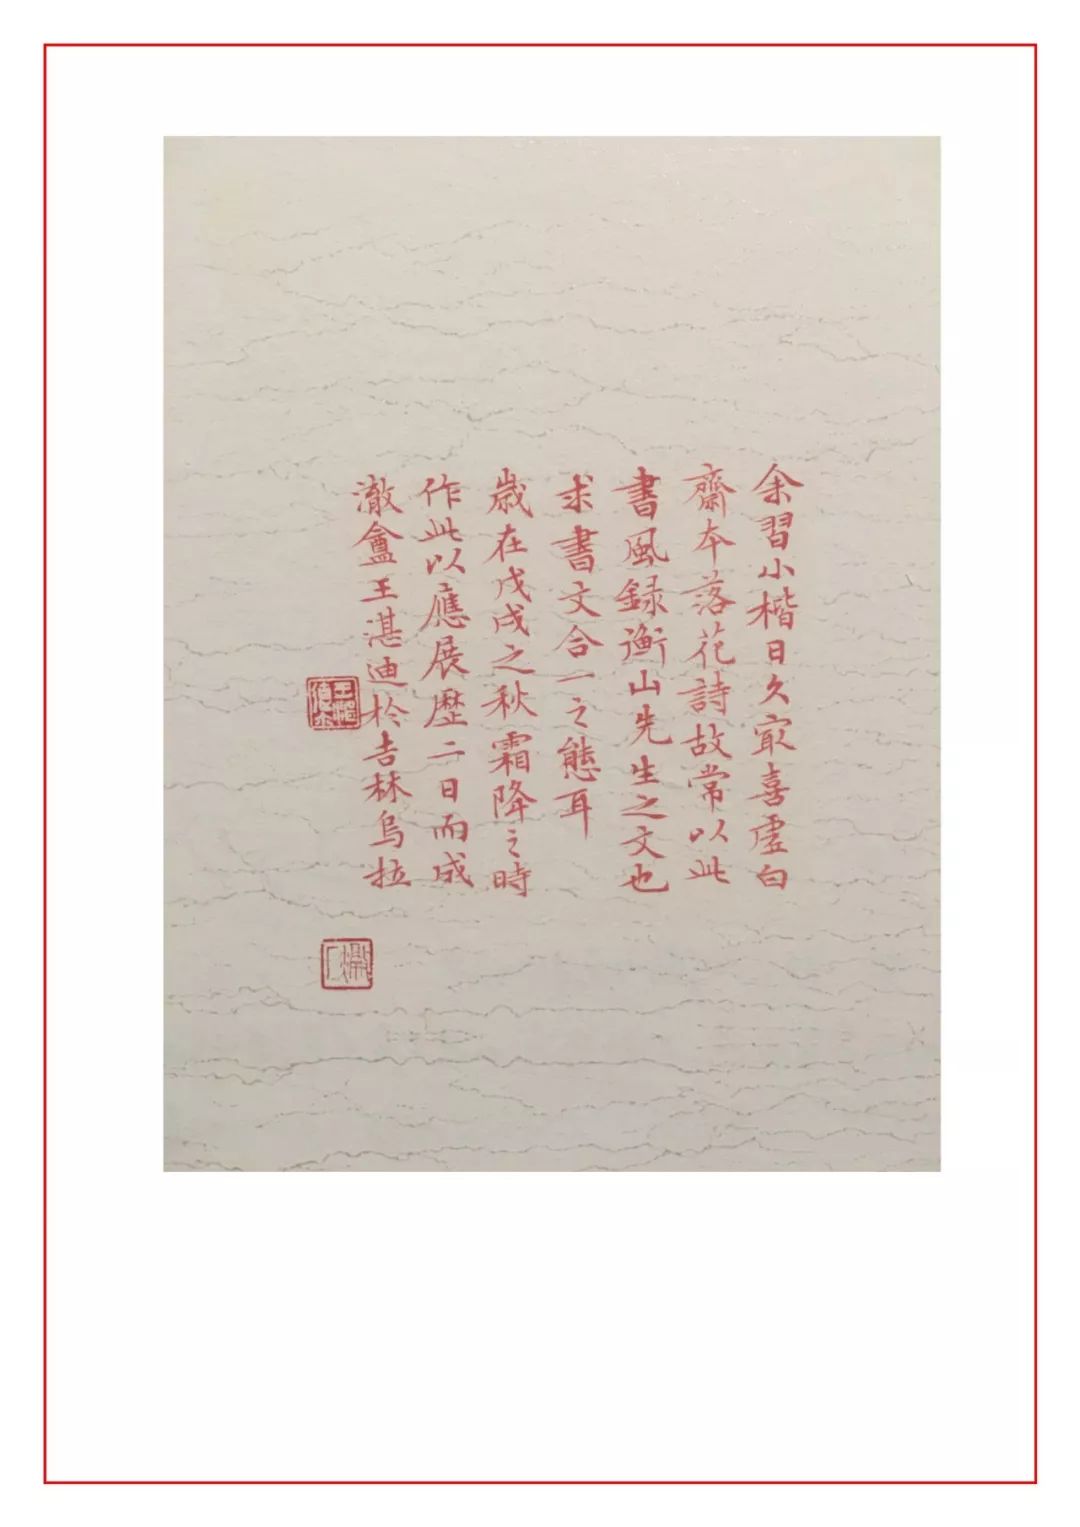 余習小楷日久冣喜虚白
齋本落花詩故常以此
書風録衡山先生之文也
求書文合一之態耳
歳在戊戌之秋霜降之時
作此以應展歷二日而成
澈盦王湛迪於吉林烏拉